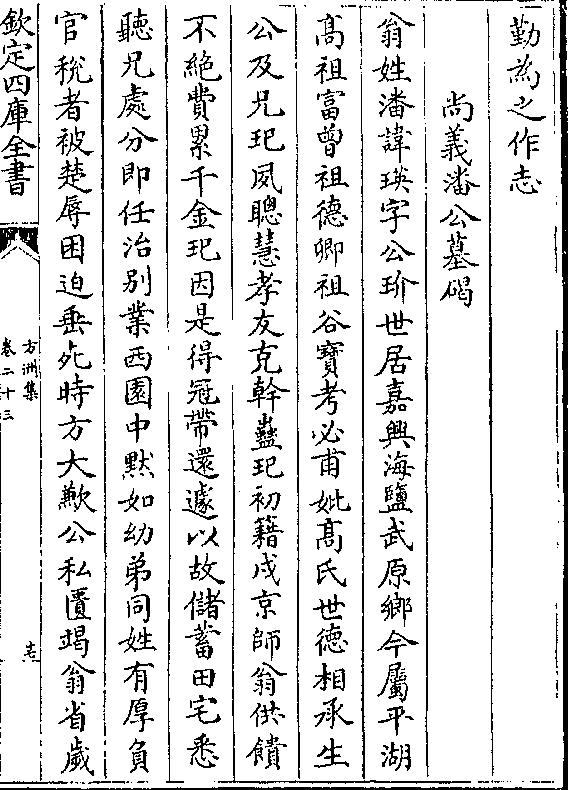 勤為之作志
尚義潘公墓碣
翁姓潘諱瑛字公玠世居嘉興海鹽武原鄉今屬平湖
髙祖富曽祖德卿祖谷寳考必甫妣髙氏世徳相承生
公及兄玘夙聰慧孝友克幹蠱玘初籍戍京師翁供饋
不絶費累千金玘因是得冠帶還遽以故儲蓄田宅悉
聽兄處分即任治别業西園中默如幼弟同姓有厚負
官税者被楚辱困迫垂死時方大歉公私匱竭翁省歳
欽定四庫全書
方洲集
卷二十三